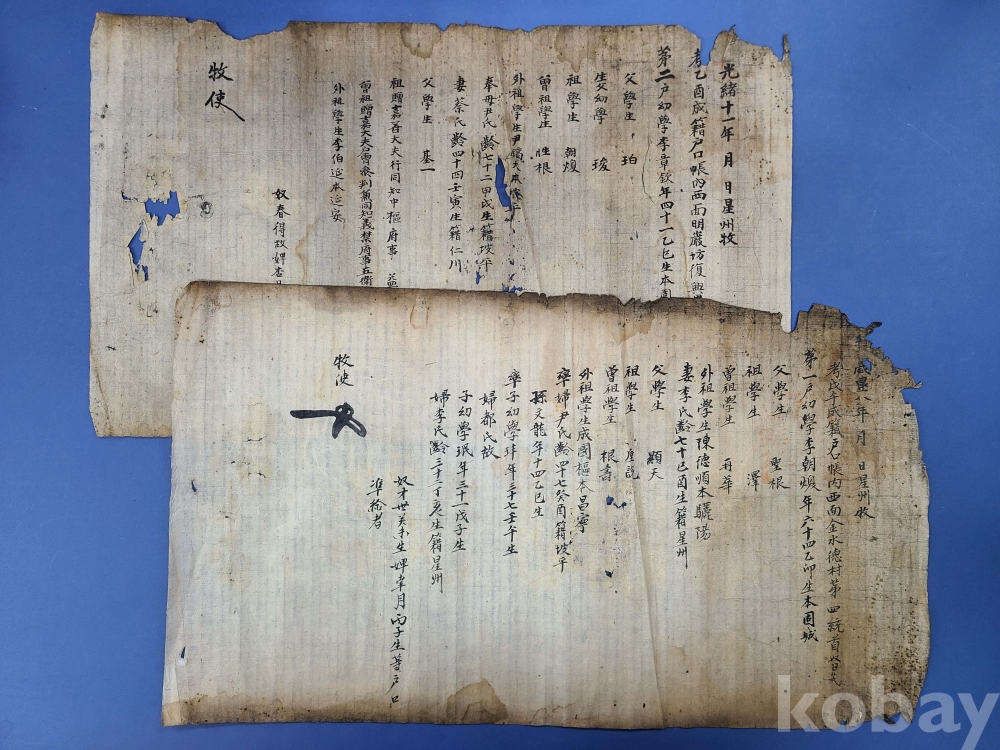 光緖十一年 月 日星州牧
考乙酉成籍戶口帳內西面明巖坊復興
第二戶幼學李章欽年四十一乙巳生本固
父學生 珀
生父幼學 㻐
祖學生 朝煥
曾祖學生 胜根
外祖學生尹
奉母尹氏齡七十二甲戌生籍坡平
妻蔡氏齡四十四壬寅生籍仁川
父學生 基一
祖贈嘉善大夫行同知中樞府事
曾祖贈嘉大夫戶曹參判兼同知義禁府事五衛
外祖學生李伯延本延安
奴春得故婢
牧使
咸豊八年 月 日星州牧
考戊午成籍戶口帳內西面金水德村第四統首
第一戶幼學李朝煥年六十四乙卯生本固城
父學生 聖根
祖學生 澤
曾祖學生 再華
外祖學生陳德順本驪陽
妻李氏齡七十己酉生籍星州
父學生 顯天
祖學生 屋說
曾祖學生 根壽
外祖學生成國樞本昌寧
率婦尹氏齡四十七癸酉籍坡平
孫文龍年十四乙巳生
率子幼學珒年三十七壬午生
婦都氏故
子幼學珉年三十一戊子生
婦李氏齡三十二丁亥生籍星州
奴才世癸未生婢幸月丙子生等戶口
準給者
牧使
kobay